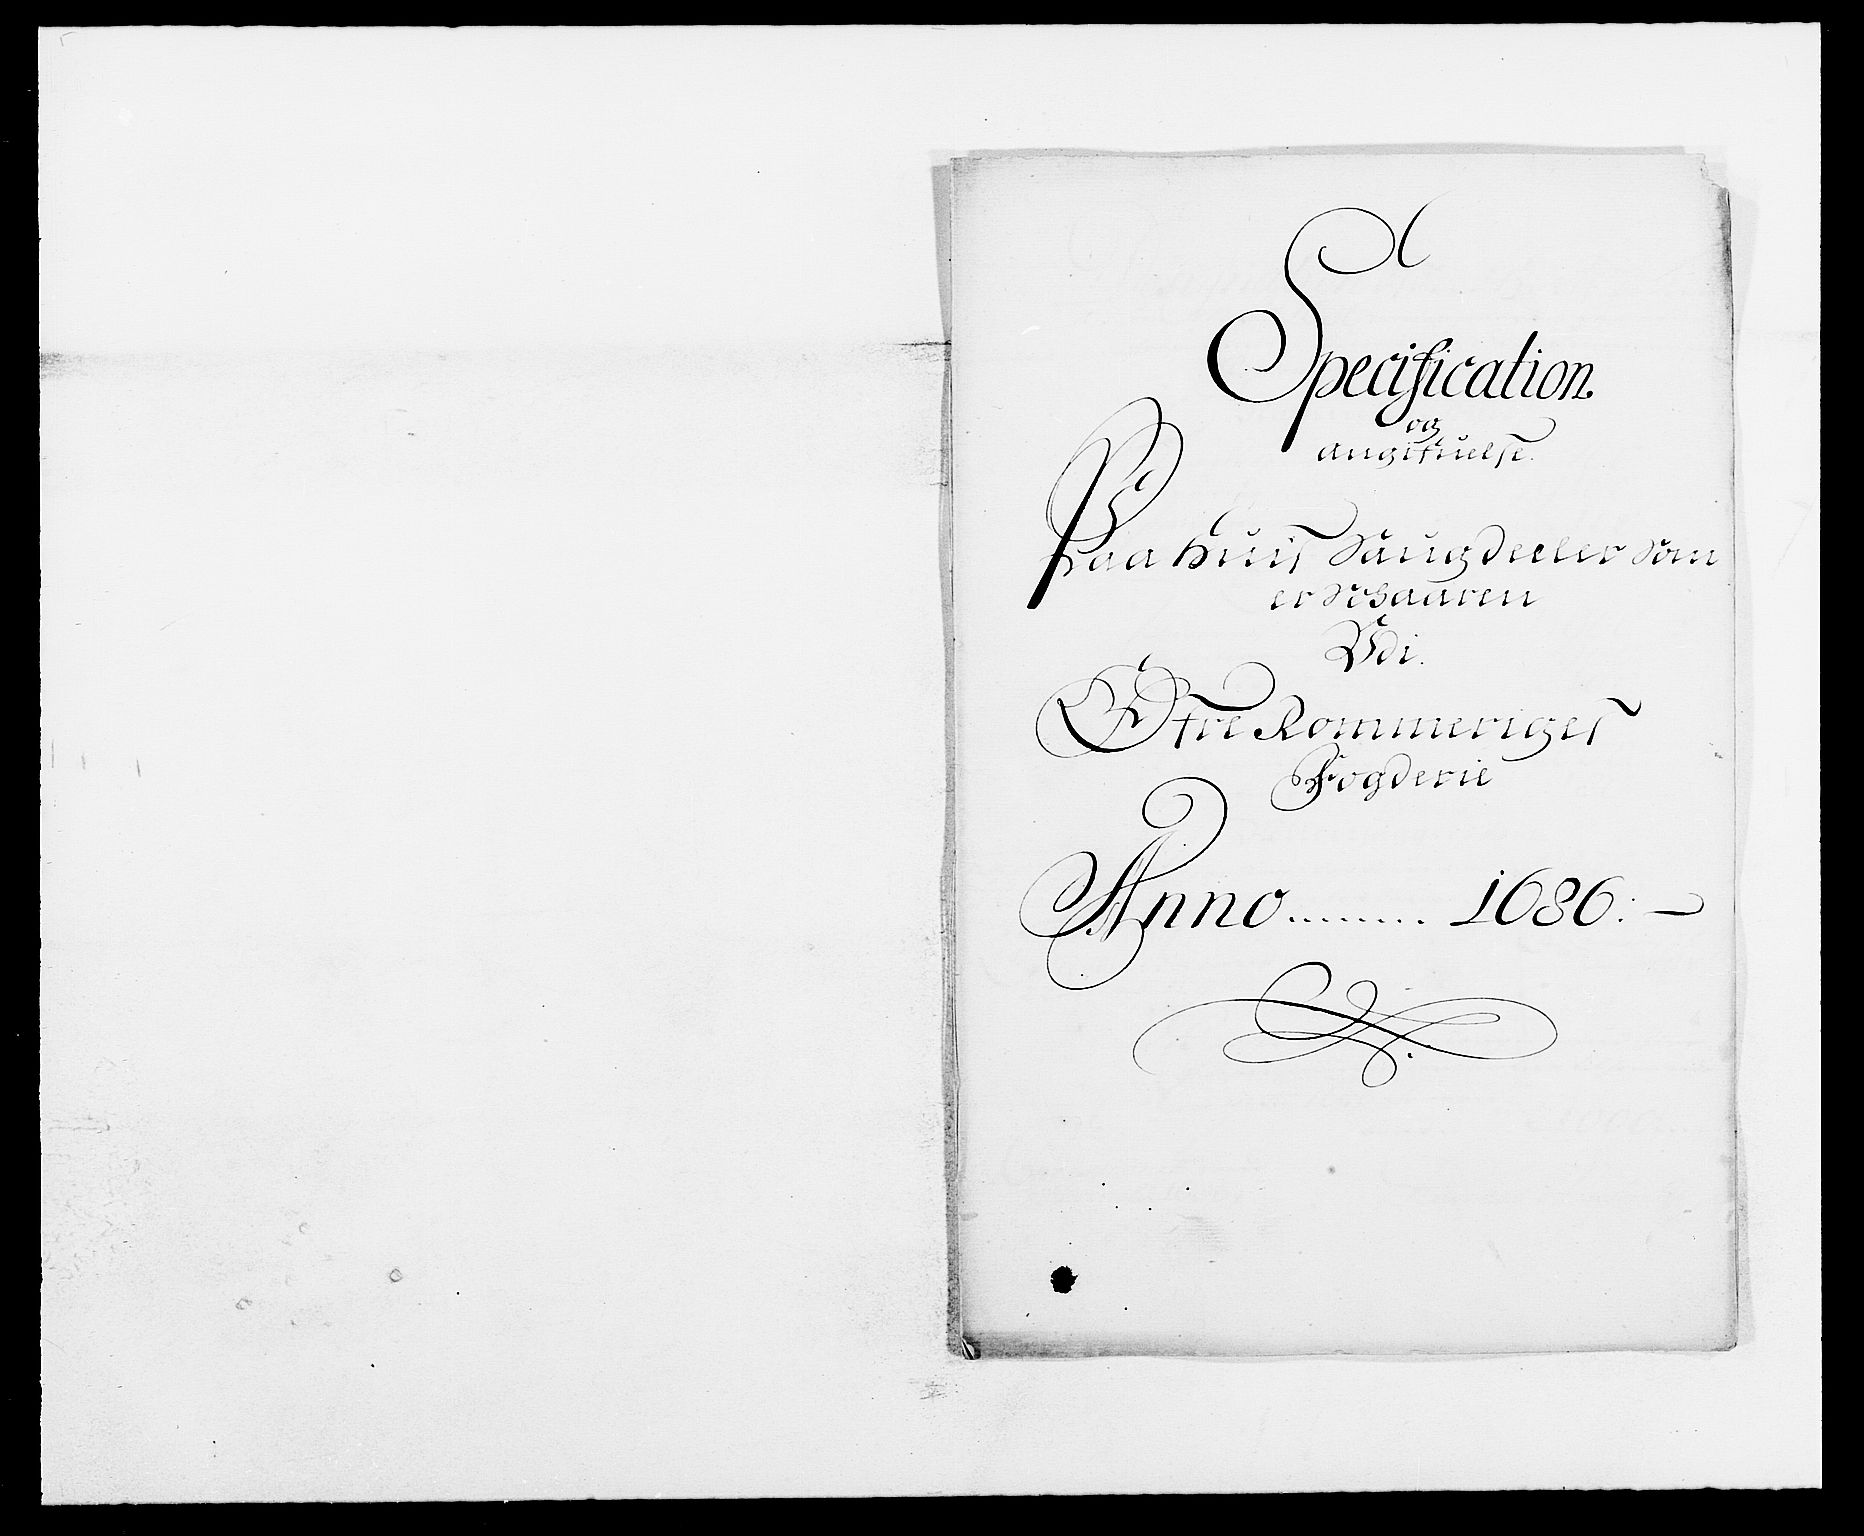 Specification
og
angifuelse
Paa huis Saugdeeler Som
er Schaaren
Vdi.
Øfre Rommeriges
Fogderie
Anno ........ 1686:-